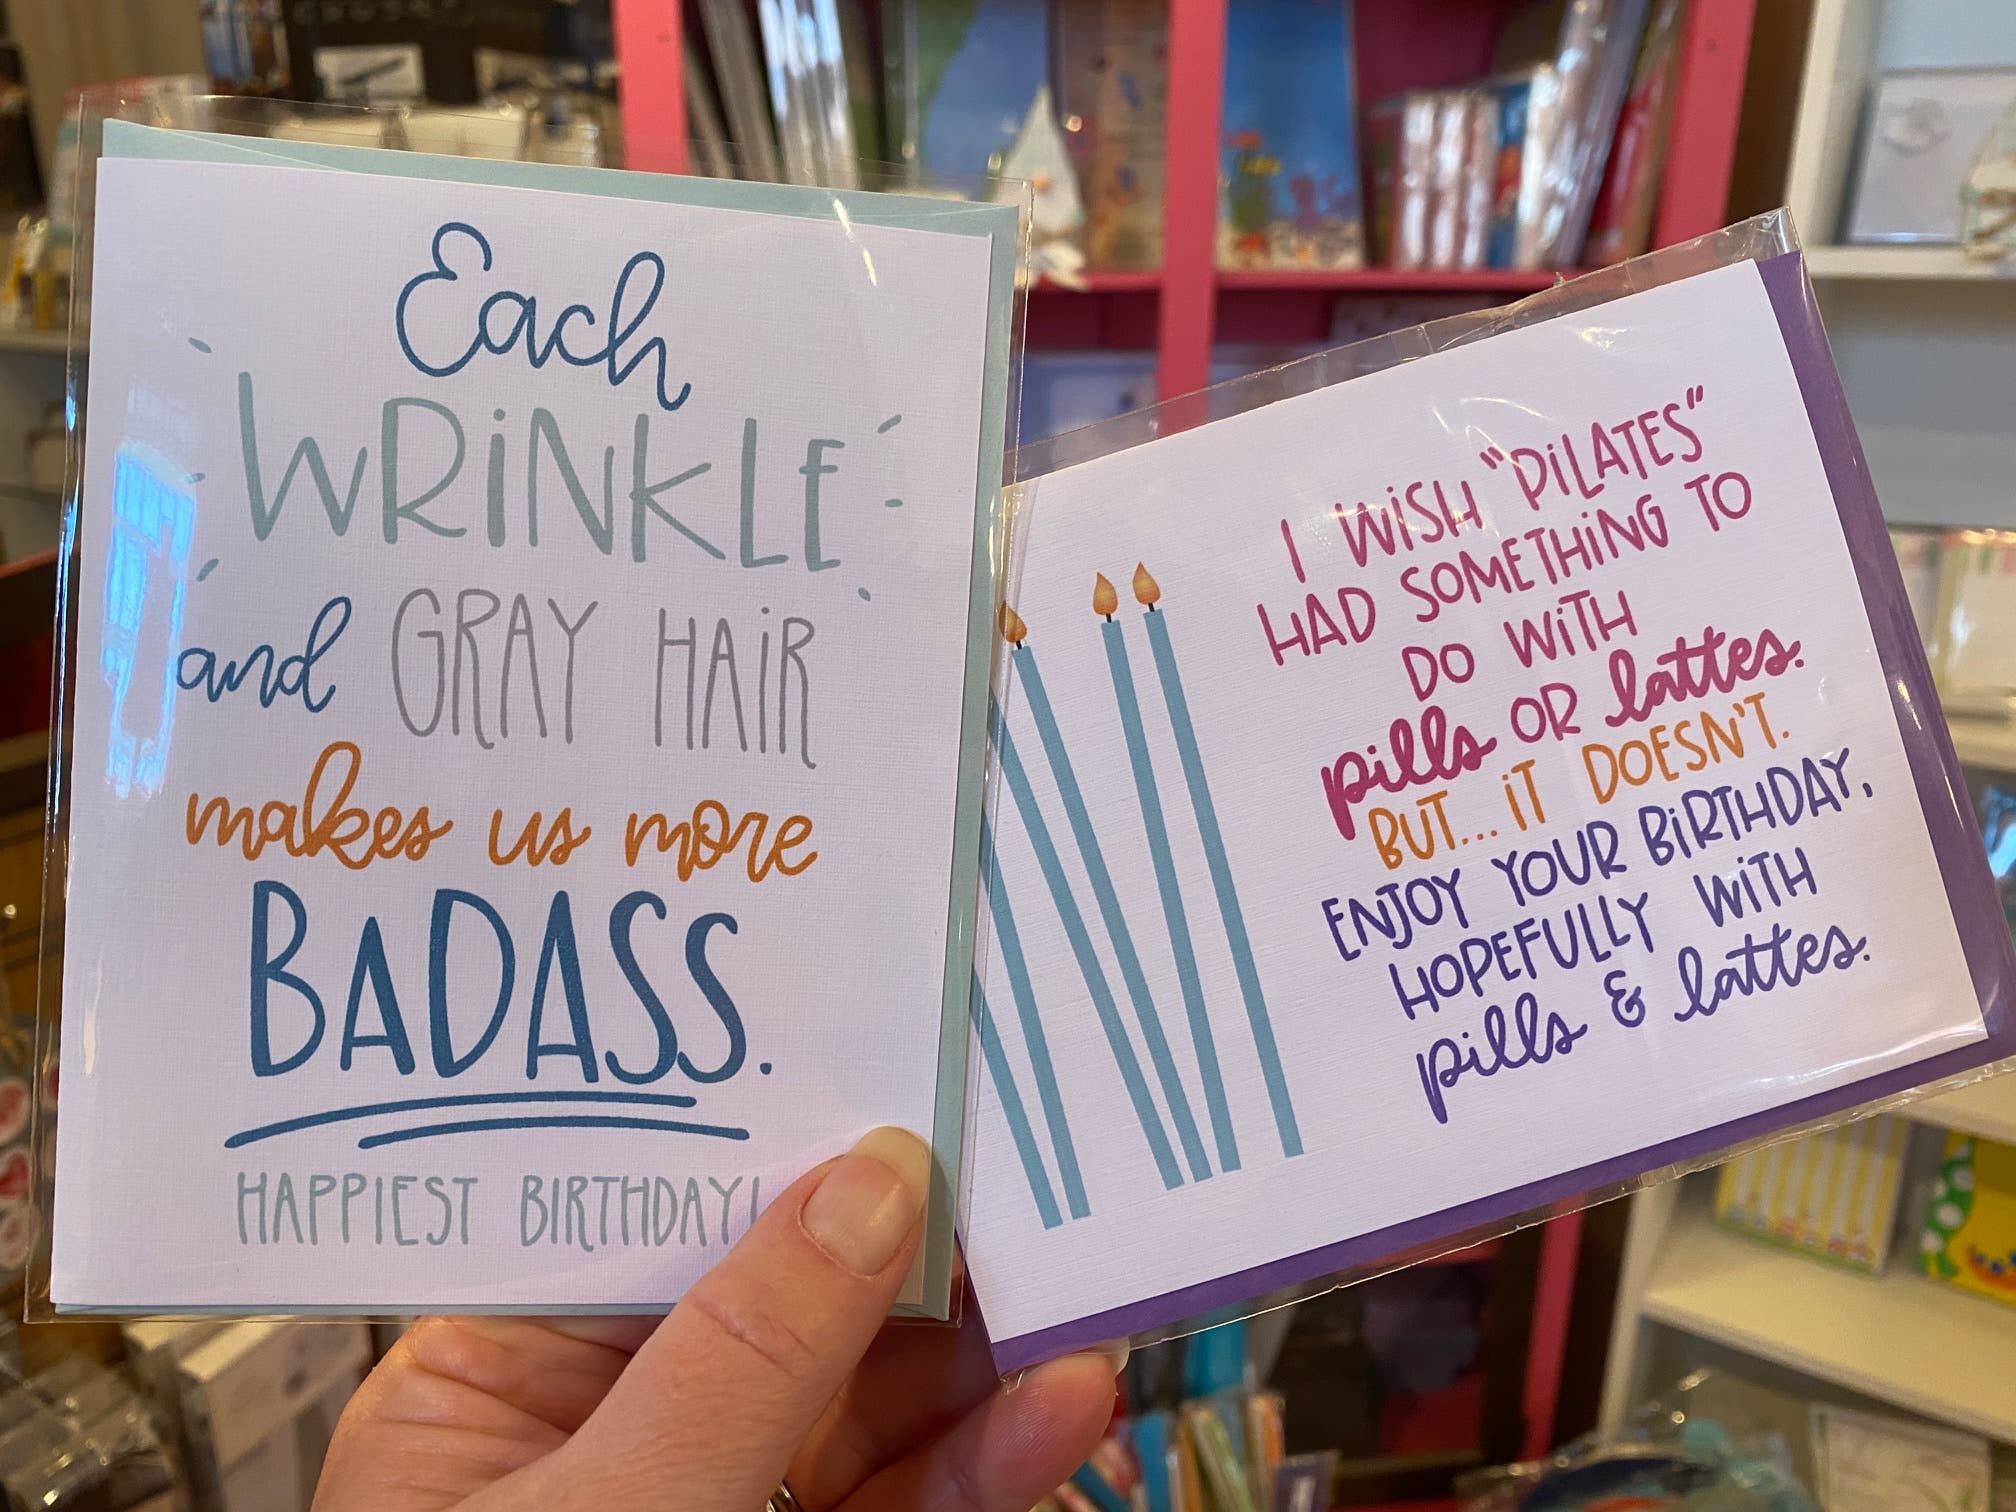 Each
WRiNKLE
and GRAY HAiR
makes us more
BADASS.
HAPPIEST BIRTHDAY!
I WiSH "PiLATES"
HAD SOMETHiNG TO
DO WiTH
pills OR lattes.
BUT... iT DOESN'T.
ENJOY YOUR BiRTHDAY,
HOPEFULLY WiTH
pills & lattes.